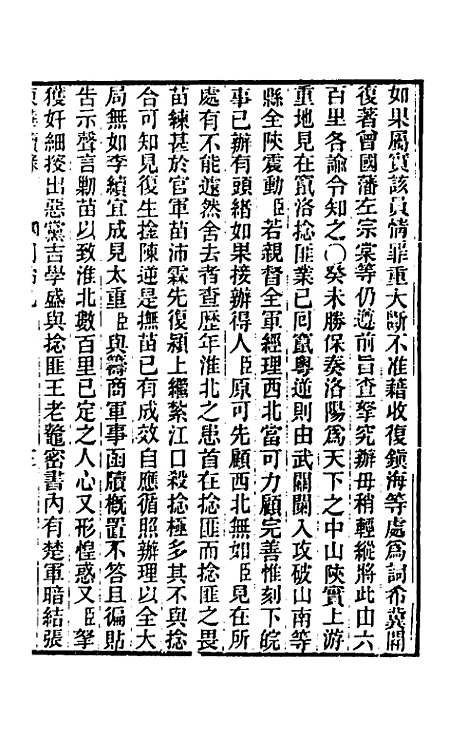 如果屬實該員情罪重大斷不准藉收復鎭海等處爲詞希冀開
復著曾國藩左宗棠等仍遵前旨查拏究辦毋稍輕縱將此由六
百里各諭令知之〇癸未勝保奏洛陽爲天下之中山陝實上游
重地見在竄洛捻匪業已囘竄粵逆則由武關闌入攻破山南等
縣全陝震動臣若親督全軍經理西北當可力顧完善惟刻下皖
事已辦有頭緒如果接辦得人臣原可先顧西北無如臣見在所
處有不能遽然舍去者查歷年淮北之患首在捻匪而捻匪之畏
苗練甚於官軍苗沛霖先復潁上繼紮江口殺捻極多其不與捻
合可知見復生捻陳逆是撫苗已有成效自應循照辦理以全大
局無如李續宜成見太重臣與籌商軍事函牘槪置不答且徧貼
告示聲言勦苗以致淮北數百里已定之人心又形惶惑又臣拏
獲奸細搜出惡黨吉學盛與捻匪王老鼇密書內有楚軍暗結張